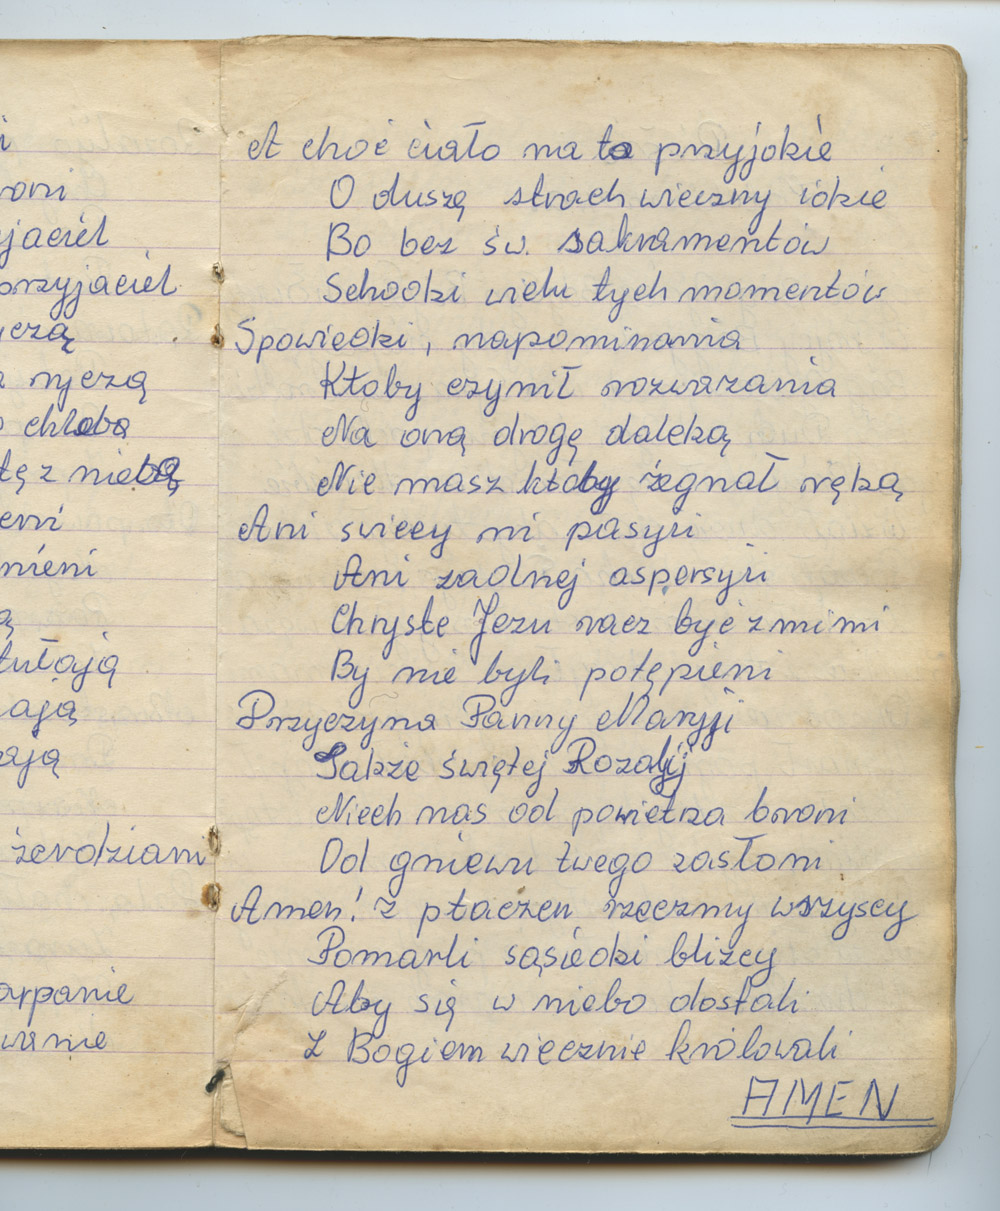 jaciel
przyjaciel
ryczą
chleba
tę z niebą
tułają
żerdziam
A choć ciało na to przyjdkie
O duszą strach wieczny idkie
Bo bez św. sakramentów
Schodki wielu tych momentów
Spowiedki, napominania
Ktoby czynił rozwarzania
Na oną drogę daleką
Nie masz ktoby żegnał ręką
Ani swiecy ni pasyji
Ani zadnej aspersyji
Chryste Jezu racz być z nimi
By nie byli potępieni
Przyczyna Panny Maryji
Także świętej Rozalij
Niech nas od powietrza broni
Od gniewu twego zasłoni
Amen! Z płaczen rzeczmy wszyscy
Pomarli sąsiedki blizcy
Aby się w niebo dostali
Z Bogiem wiecznie królowali
AMEN